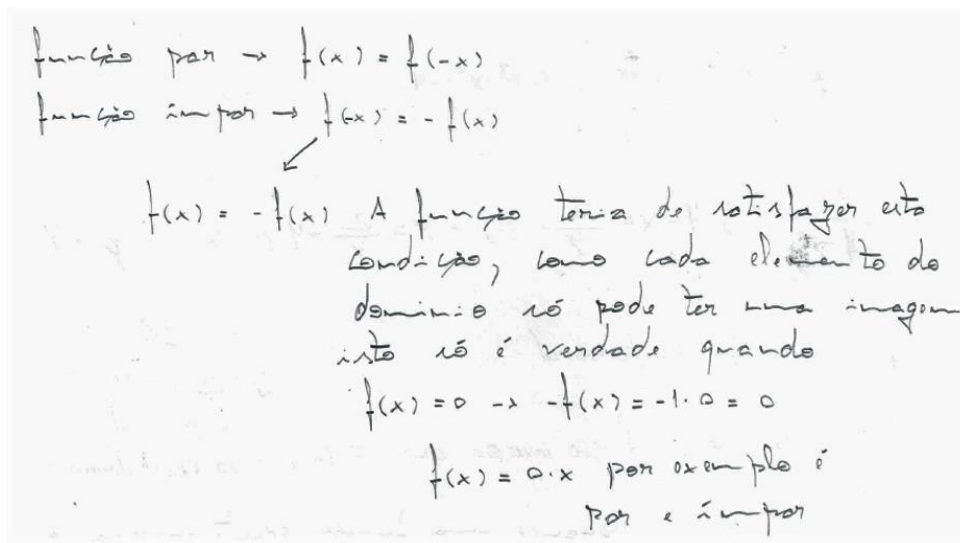 função par → f(x) = f(-x)
função ímpar → f(-x) = - f(x)
f(x) = - f(x) A função teria de satisfazer esta
condição, como cada elemento do
domínio só pode ter uma imagem
isto só é verdade quando
f(x) = 0 → -f(x) = -1·0 = 0
f(x) = 0·x por exemplo é
par e ímpar